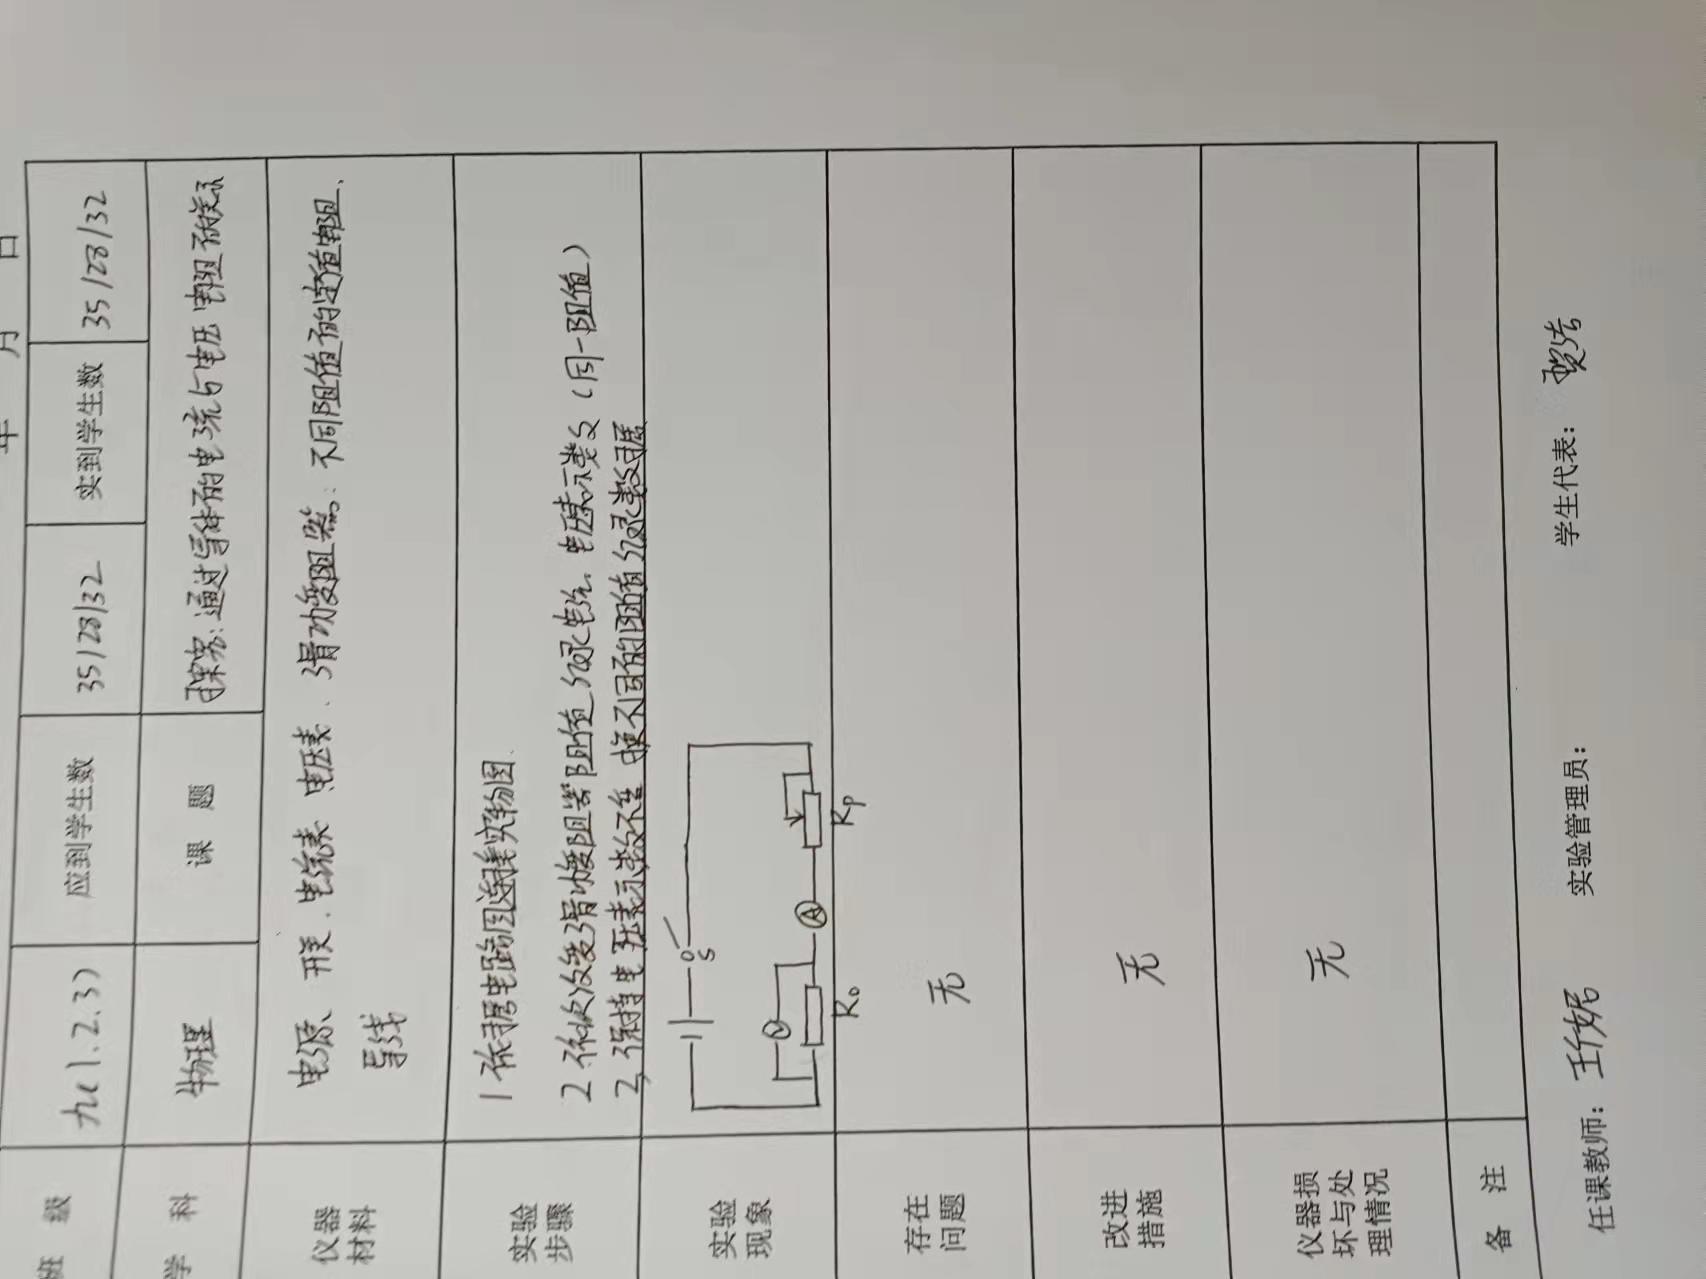 年 月 日
班 级 九(1.2.3) 应到学生数 35/28/32 实到学生数 35/28/32
学 科 物理 课 题 探究:通过导体的电流与电压电阻的关系
仪器材料 电源、开关、电流表 电压表、滑动变阻器、不同阻值的定值电阻、
导线
实验步骤 1 依据电路图连接实物图.
2 依次改变滑动变阻器阻值 记录电流、电压表示数(同一阻值)
2, 保持电压表示数不变 换不同的阻值 记录数据
实验现象
S
V A
R₀ Rp
存在问题 无
改进措施 无
仪器损坏与处理情况 无
备 注
任课教师: 实验管理员: 学生代表: